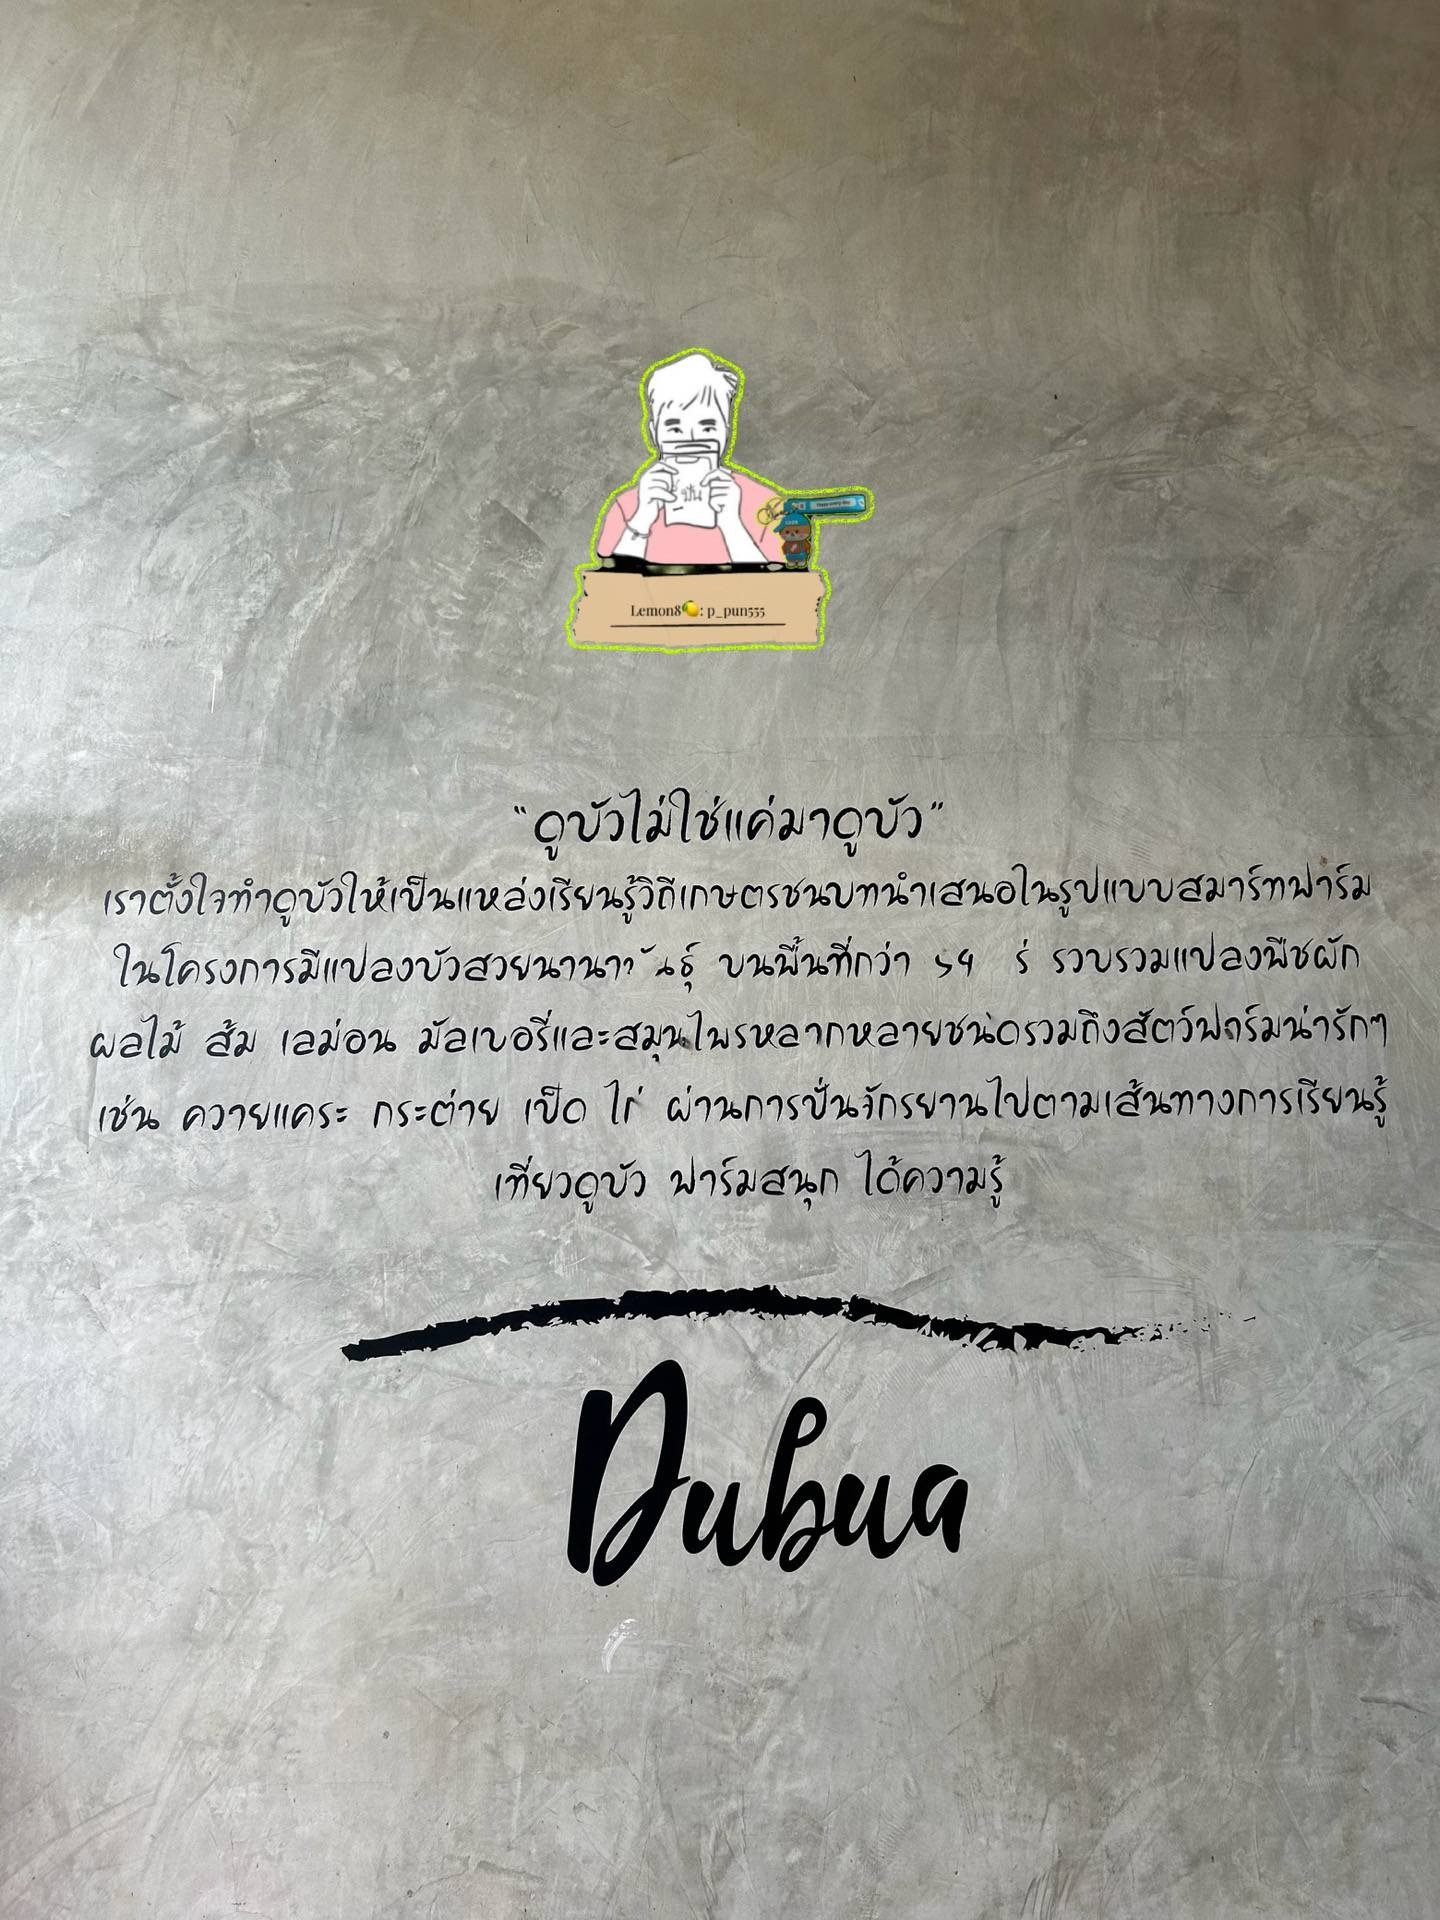 ปัน
Lemon8🍋: p_pun555
"ดูบัวไม่ใช่แค่มาดูบัว"
เราตั้งใจทำดูบัวให้เป็นแหล่งเรียนรู้วิถีเกษตรชนบทนำเสนอในรูปแบบสมาร์ทฟาร์ม
ในโครงการมีแปลงบัวสวยนานา บนพื้นที่กว่า รวบรวมแปลงพืชผัก
ผลไม้ ส้ม เลม่อน มัลเบอรี่และสมุนไพรหลากหลายชนิดรวมถึงสัตว์ฟาร์มน่ารักๆ
เช่น ควายแคระ กระต่าย เป็ด ไก่ ผ่านการปั่นจักรยานไปตามเส้นทางการเรียนรู้
เที่ยวดูบัว ฟาร์มสนุก ได้ความรู้
Dubua